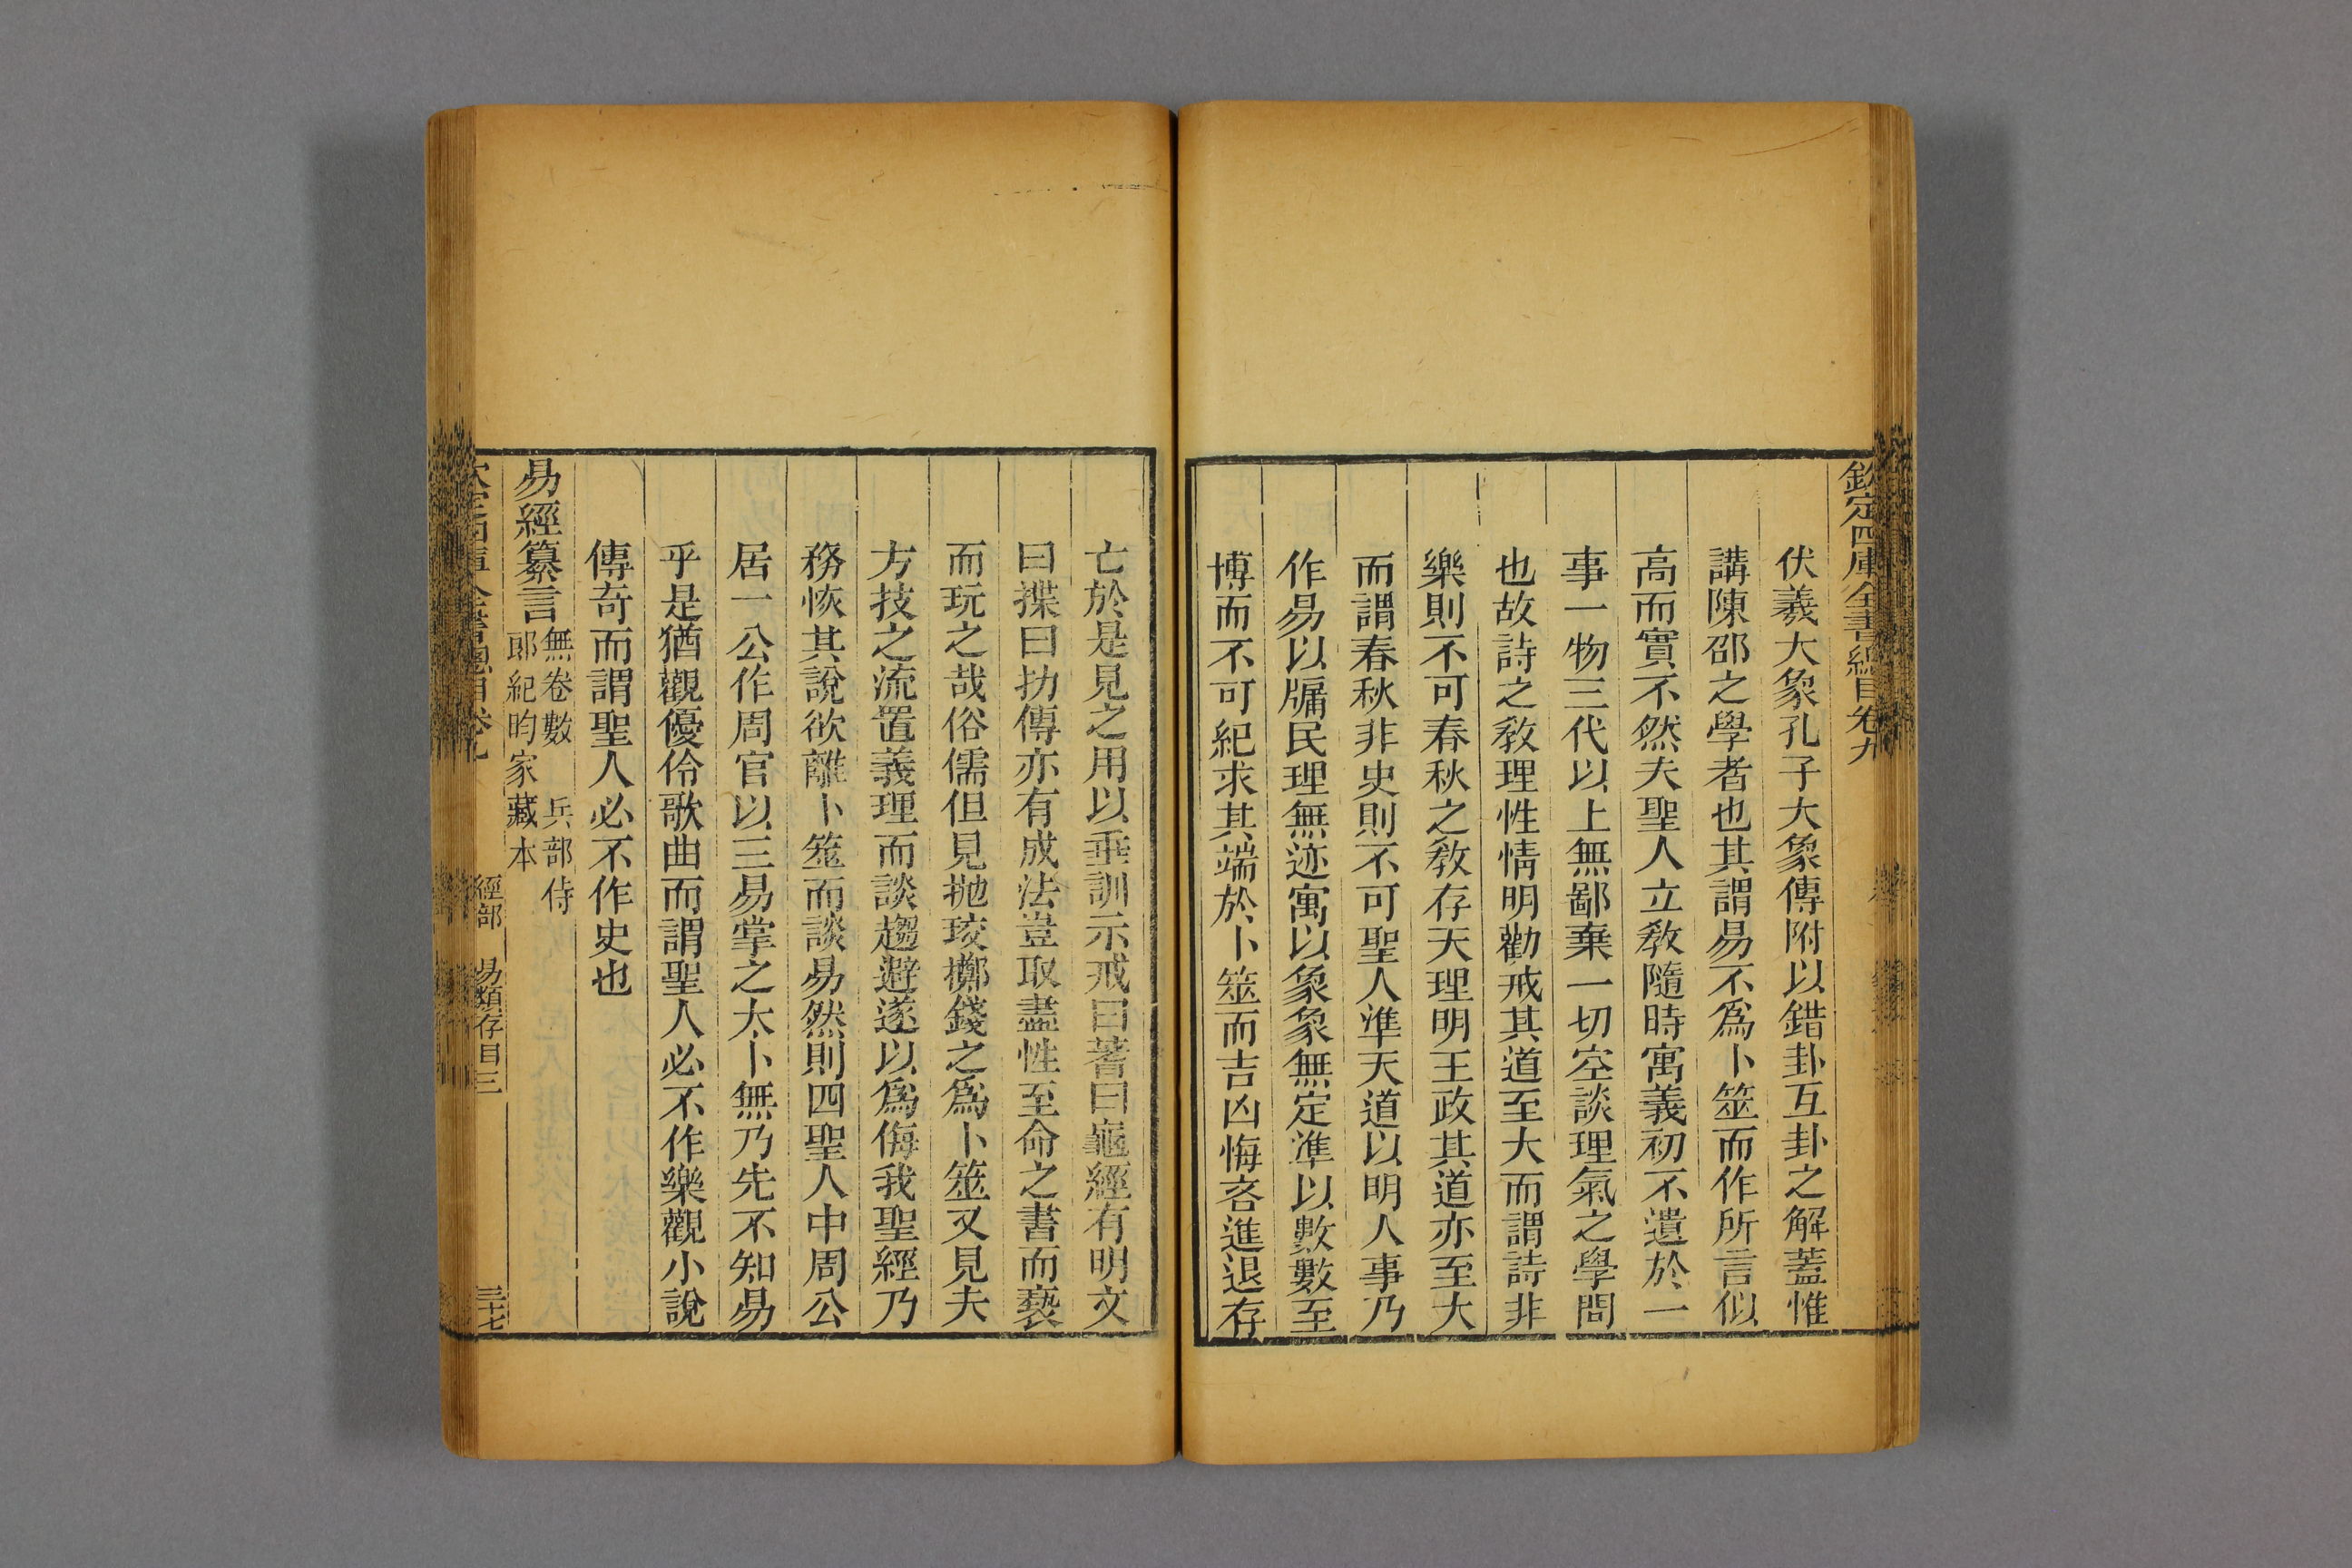 欽定四庫全書總目卷九
伏羲大象孔子大象傳附以錯卦互卦之解蓋惟
講陳邵之學者也其謂易不爲卜筮而作所言似
高而實不然夫聖人立敎隨時寓義初不遺於一
事一物三代以上無鄙棄一切空談理氣之學問
也故詩之敎理性情明勸戒其道至大而謂詩非
樂則不可春秋之敎存天理明王政其道亦至大
而謂春秋非史則不可聖人準天道以明人事乃
作易以牖民理無迹寓以象象無定準以數數至
博而不可紀求其端於卜筮而吉凶悔吝進退存
亡於是見之用以垂訓示戒曰蓍曰龜經有明文
曰揲曰扐傳亦有成法豈取盡性至命之書而褻
而玩之哉俗儒但見抛珓擲錢之爲卜筮又見夫
方技之流置義理而談趨避遂以爲侮我聖經乃
務恢其說欲離卜筮而談易然則四聖人中周公
居一公作周官以三易掌之太卜無乃先不知易
乎是猶觀優伶歌曲而謂聖人必不作樂觀小說
傳奇而謂聖人必不作史也
易經纂言無卷數 兵部侍
郎紀昀家藏本
經部 易類存目三 三十七